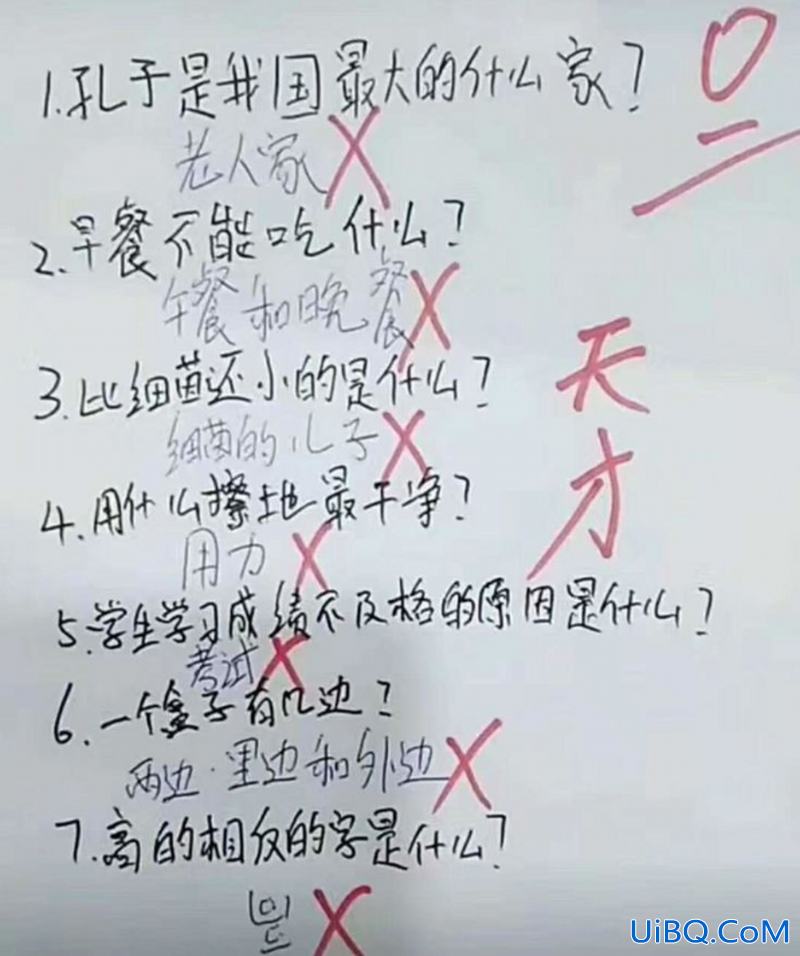 1.孔子是我国最大的什么家?
0
老人家
2.早餐不能吃什么?
午餐和晚餐
3.比细菌还小的是什么?
天才
细菌的儿子
4.用什么擦地最干净?
用力
5.学生学习成绩不及格的原因是什么?
考试
6.一个盒子有几边?
两边·里边和外边
7.高的相反的字是什么?
UiBQ.CoM